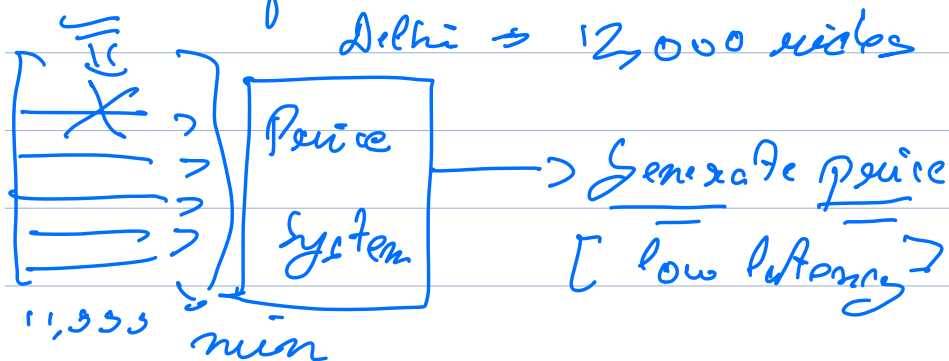 Delhi → 12,000 rides
Price
System
→ Generate price
[ low latency ]
11,999
min